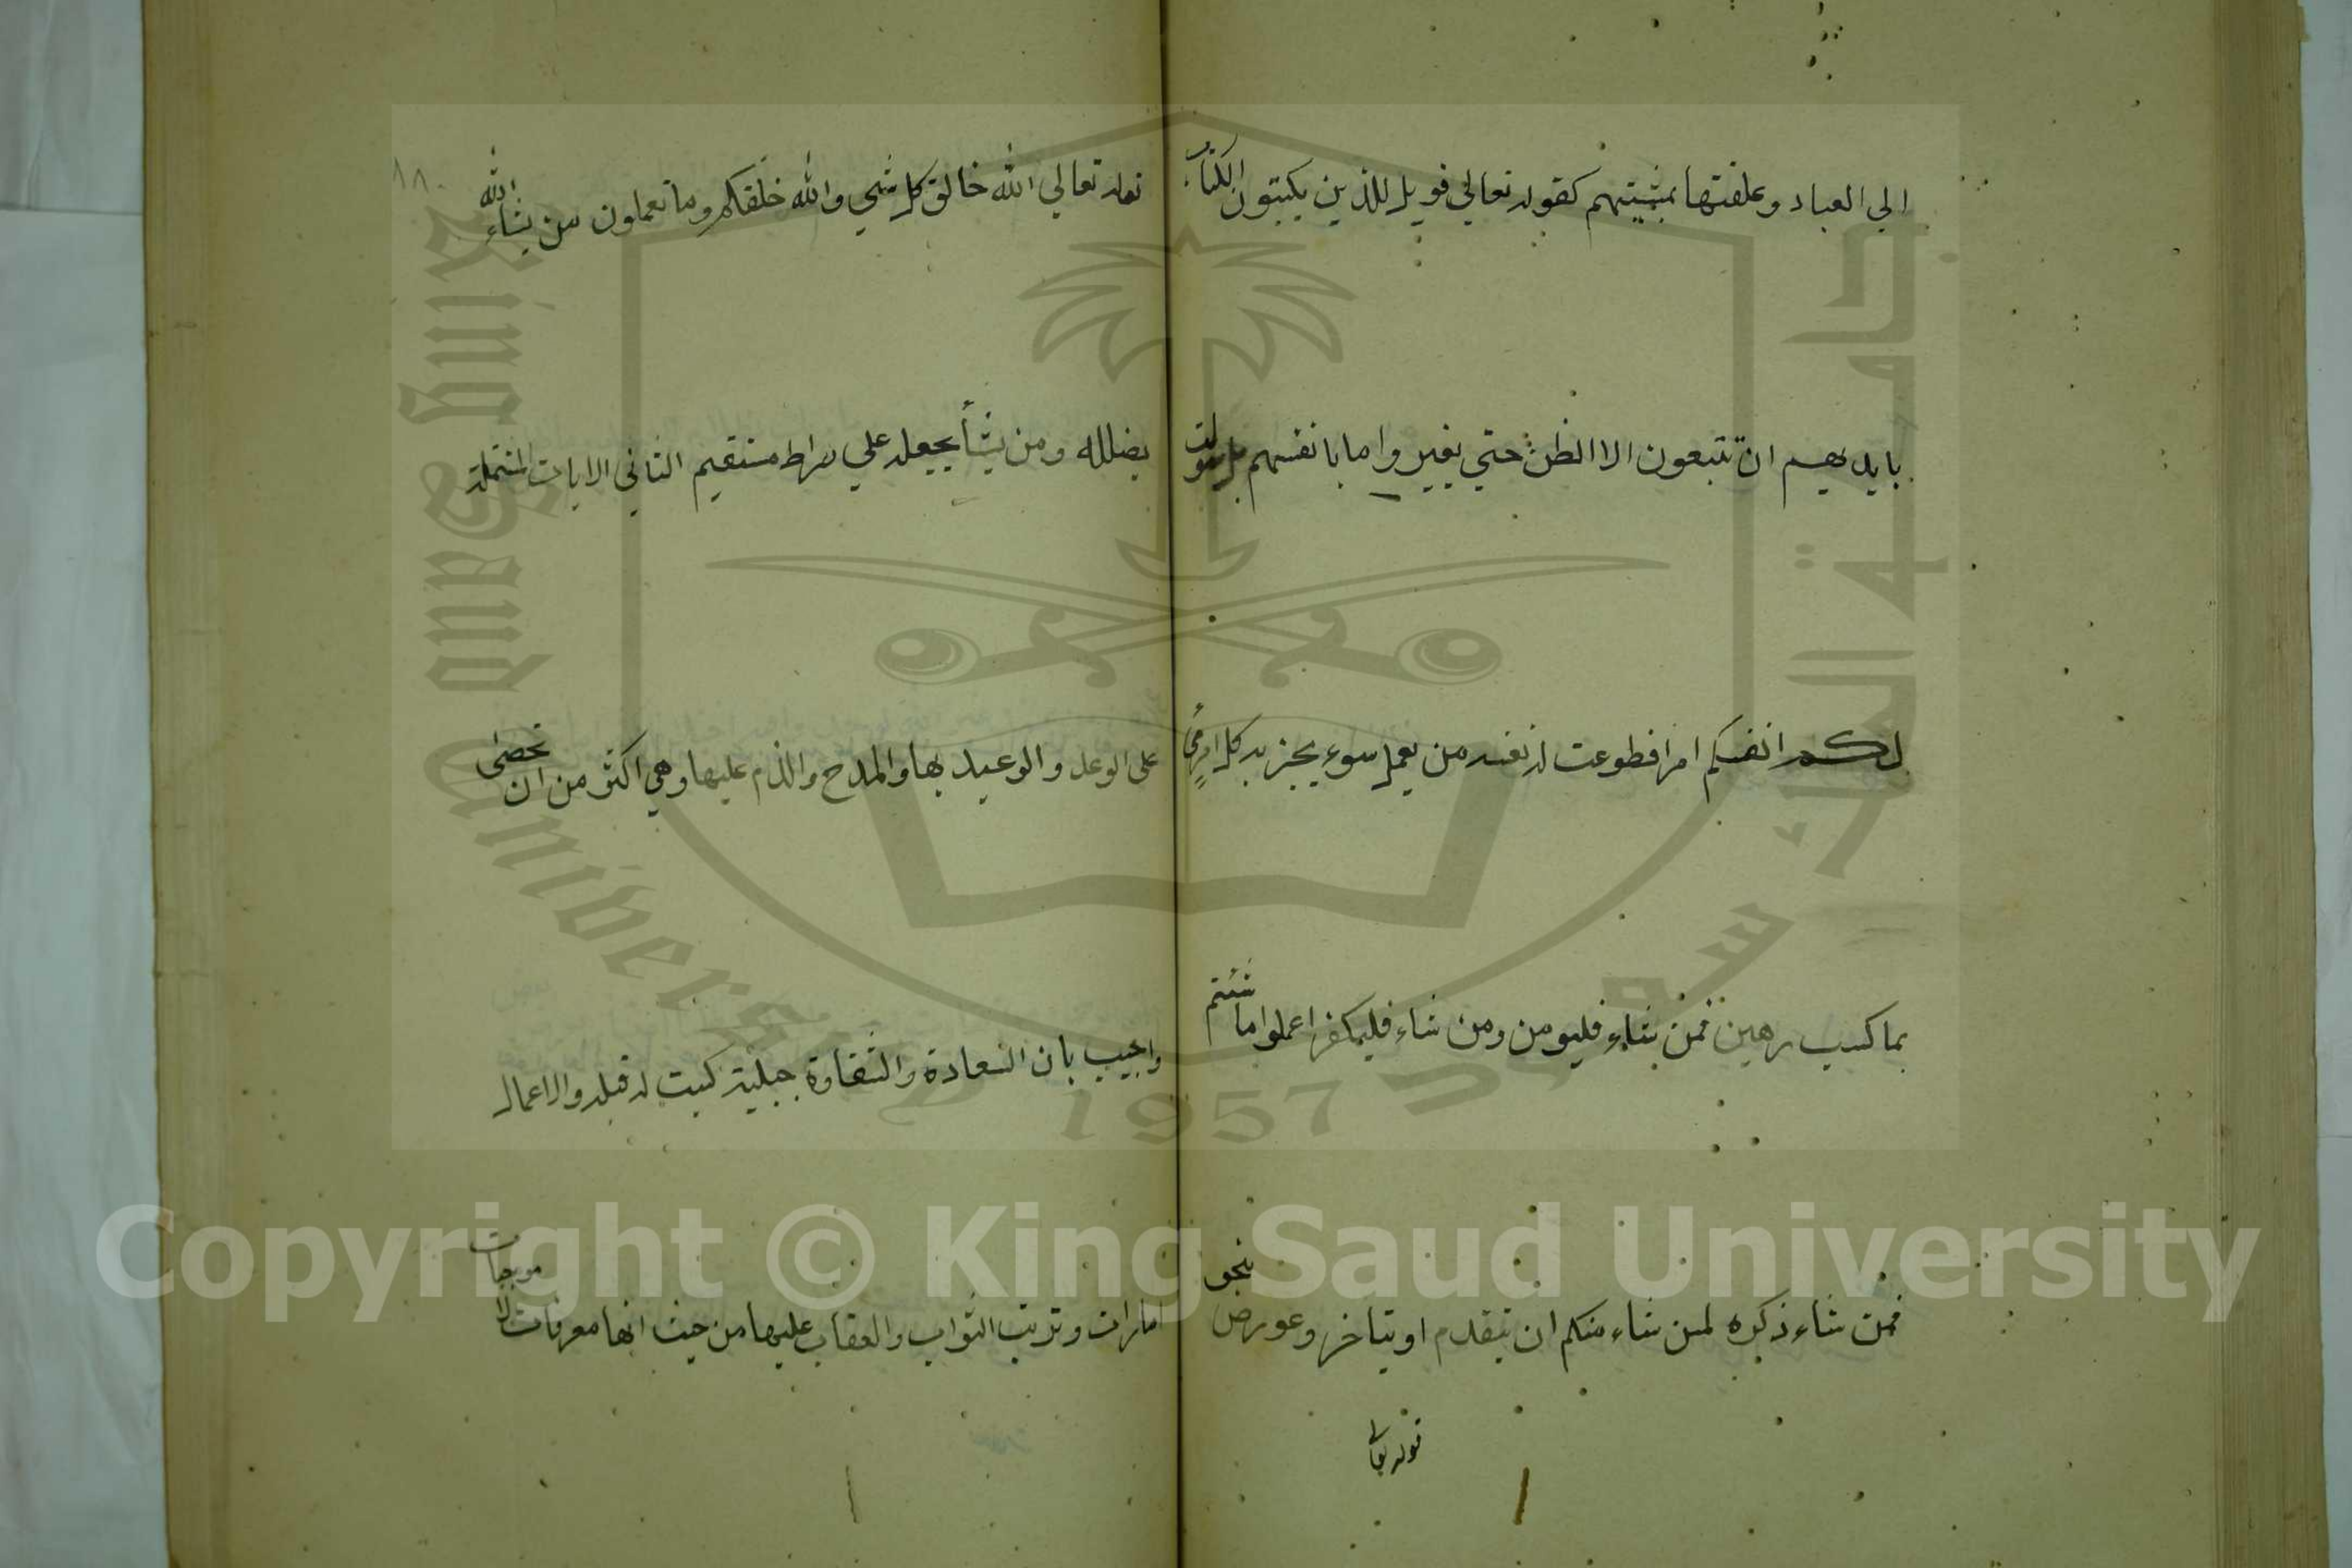 الي العباد وعلقتها بمشيتهم كقوله تعالي فويل للذين يكتبون الكتاب
بايديهم ان تتبعون الا الظن حتي يغيروا ما بانفسهم بل سولت
لكم انفسكم امرا فطوعت له نفسه من يعمل سوء يجز به كل امرئ
بما كسب رهين فمن شاء فليومن ومن شاء فليكفر اعملوا ما شئتم
فمن شاء ذكره لمن شاء منكم ان يتقدم او يتاخر وعورض بنحو
قوله تعالي
١٨٠
قوله تعالي الله خالق كل شي والله خلقكم وما تعملون من يشاء الله
يضلله ومن يشأ يجعله علي صراط مستقيم الثاني الايات المشتملة
على الوعد والوعيد بها والمدح والذم عليها وهي اكثر من ان تحصى
واجيب بان السعادة والشقاوة جبلية كتبت له قبله والاعمال
امارات وترتيب الثواب والعقاب عليها من حيث انها معرفات لا موجبات
King Saud University
جامعة الملك سعود
1957
Copyright © King Saud University